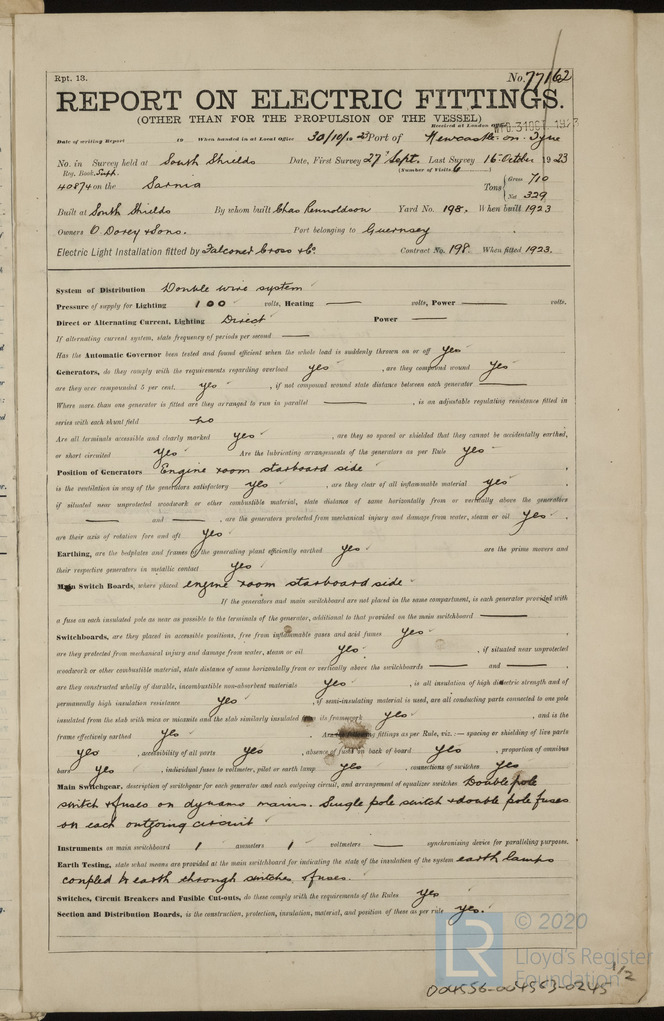 Rpt. 13.
No. 77162
REPORT ON ELECTRIC FITTINGS.
(OTHER THAN FOR THE PROPULSION OF THE VESSEL)
Received at London Office WED. 31 OCT 1923
Date of writing Report 19 When handed in at Local Office 30/10/1923 Port of Newcastle-on-Tyne
No. in Survey held at South Shields Date, First Survey 27 Sept. Last Survey 16 October 1923
Reg. Book. Supp. (Number of Visits 6
40874 on the Sarnia Tons { Gross 710
Net 329
Built at South Shields By whom built Chas Rennoldson Yard No. 198. When built 1923
Owners O Dorey & Sons. Port belonging to Guernsey
Electric Light Installation fitted by Falconer Cross & Co. Contract No. 198. When fitted 1923.
System of Distribution Double wire system
Pressure of supply for Lighting 100 volts, Heating — volts, Power — volts.
Direct or Alternating Current, Lighting Direct Power —
If alternating current system, state frequency of periods per second —
Has the Automatic Governor been tested and found efficient when the whole load is suddenly thrown on or off yes
Generators, do they comply with the requirements regarding overload yes , are they compound wound yes
are they over compounded 5 per cent. yes , if not compound wound state distance between each generator —
Where more than one generator is fitted are they arranged to run in parallel — , is an adjustable regulating resistance fitted in
series with each shunt field no
Are all terminals accessible and clearly marked yes , are they so spaced or shielded that they cannot be accidentally earthed,
or short circuited yes Are the lubricating arrangements of the generators as per Rule yes
Position of Generators Engine room starboard side
is the ventilation in way of the generators satisfactory yes , are they clear of all inflammable material yes
if situated near unprotected woodwork or other combustible material, state distance of same horizontally from or vertically above the generators
— and — , are the generators protected from mechanical injury and damage from water, steam or oil yes ,
are their axis of rotation fore and aft yes
Earthing, are the bedplates and frames of the generating plant efficiently earthed yes are the prime movers and
their respective generators in metallic contact yes
Main Switch Boards, where placed engine room starboard side
If the generators and main switchboard are not placed in the same compartment, is each generator provided with
a fuse on each insulated pole as near as possible to the terminals of the generator, additional to that provided on the main switchboard —
Switchboards, are they placed in accessible positions, free from inflammable gases and acid fumes yes ,
are they protected from mechanical injury and damage from water, steam or oil yes , if situated near unprotected
woodwork or other combustible material, state distance of same horizontally from or vertically above the switchboards — and — ,
are they constructed wholly of durable, incombustible non-absorbent materials yes , is all insulation of high dielectric strength and of
permanently high insulation resistance yes , if semi-insulating material is used, are all conducting parts connected to one pole
insulated from the slab with mica or micanite and the slab similarly insulated from its framework yes , and is the
frame effectively earthed yes . Are the fittings as per Rule, viz. :— spacing or shielding of live parts
yes , accessibility of all parts yes , absence of fuses on back of board yes , proportion of omnibus
bars yes , individual fuses to voltmeter, pilot or earth lamp yes , connections of switches yes
Main Switchgear, description of switchgear for each generator and each outgoing circuit, and arrangement of equalizer switches Double pole
switch & fuses on dynamo mains. Single pole switch & double pole fuses
on each outgoing circuit
Instruments on main switchboard 1 ammeters 1 voltmeters — synchronising device for paralleling purposes.
Earth Testing, state what means are provided at the main switchboard for indicating the state of the insulation of the system earth lamps
coupled to earth through switches & fuses.
Switches, Circuit Breakers and Fusible Cut-outs, do these comply with the requirements of the Rules yes
Section and Distribution Boards, is the construction, protection, insulation, material, and position of these as per rule yes.
© 2020
LR
Lloyd's Register
Foundation
1/2
004556-004563-0245